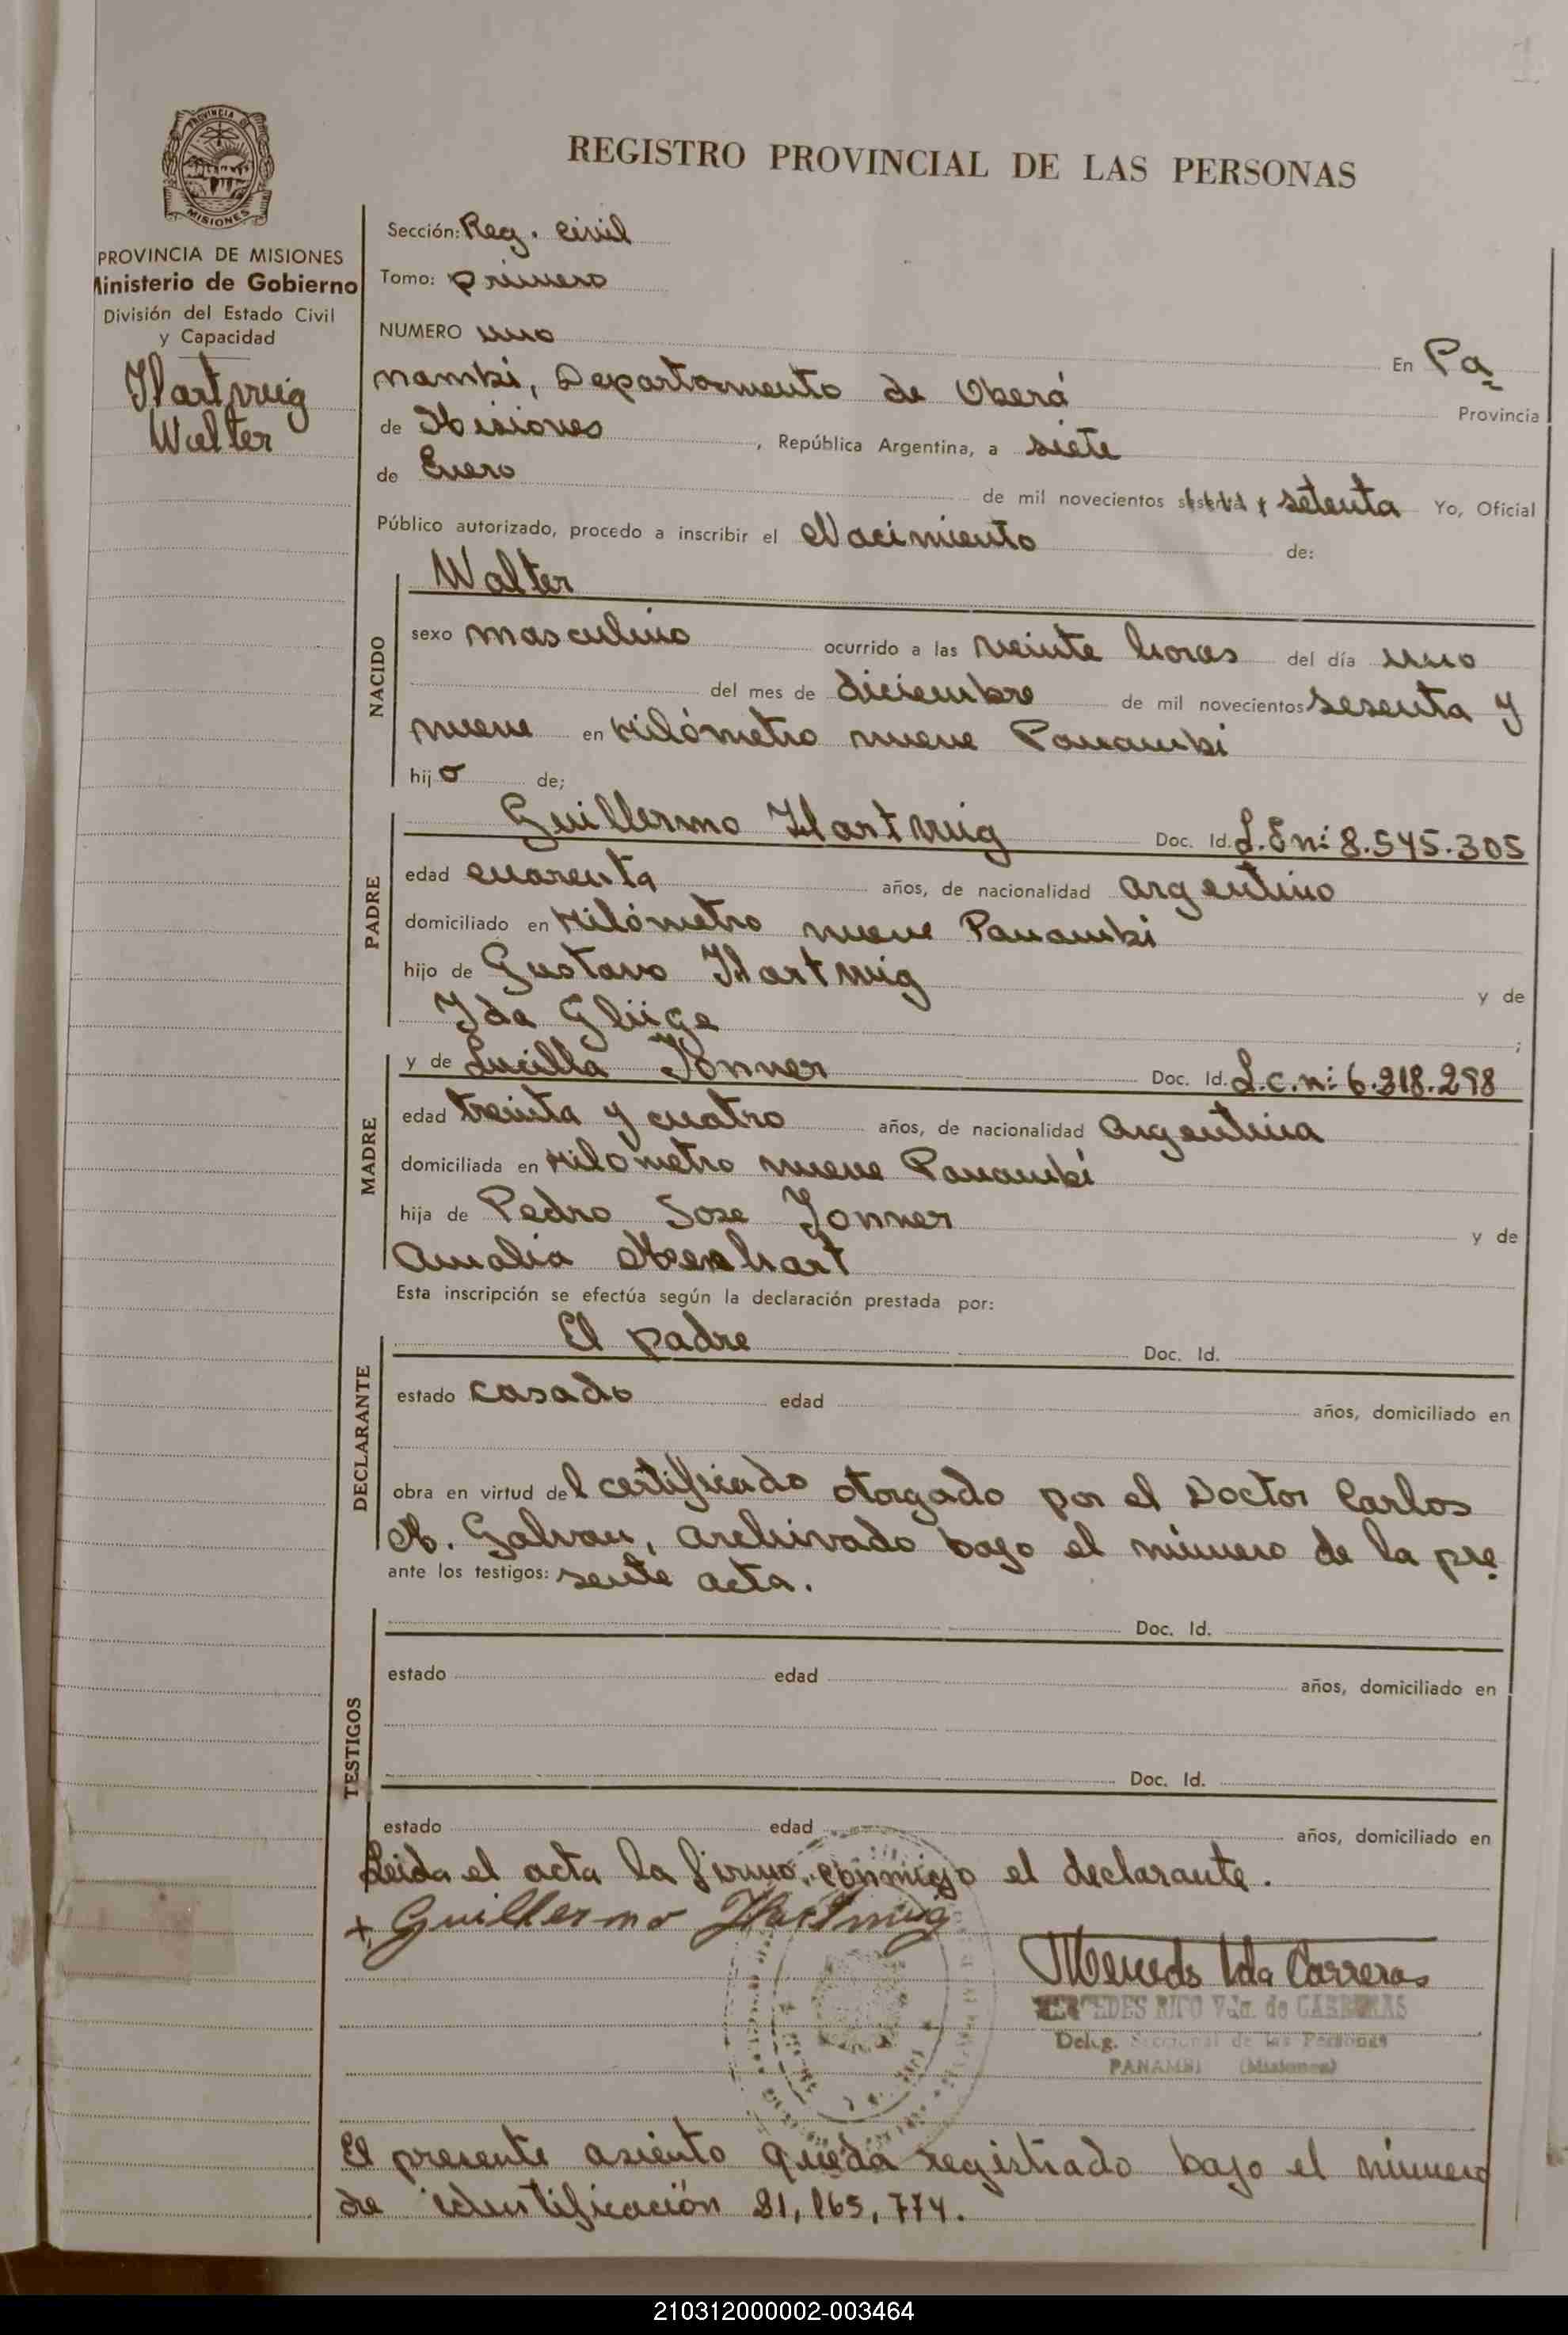 REGISTRO PROVINCIAL DE LAS PERSONAS
PROVINCIA
MISIONES
PROVINCIA DE MISIONES
Ministerio de Gobierno
División del Estado Civil
y Capacidad
Hartwig
Walter
Sección: Reg. civil
Tomo: primero
NUMERO uno
En Pa
nambi, Departamento de Oberá Provincia
de Misiones, República Argentina, a siete
de Enero de mil novecientos setenta Yo, Oficial
Público autorizado, procedo a inscribir el Nacimiento de:
NACIDO
Walter
sexo masculino ocurrido a las veinte horas del día uno
del mes de diciembre de mil novecientos sesenta y
nueve en kilómetro nueve Panambi
hijo de;
PADRE
Guillermo Hartwig Doc. Id. L.E nº 8.545.305
edad cuarenta años, de nacionalidad argentino
domiciliado en kilómetro nueve Panambi
hijo de Gustavo Hartwig y de
Ida Glüge ;
MADRE
y de Lucilla Jonner Doc. Id. L.C. nº 6.318.298
edad treinta y cuatro años, de nacionalidad argentina
domiciliada en kilómetro nueve Panambí
hija de Pedro Jose Jonner y de
Amalia
Esta inscripción se efectúa según la declaración prestada por:
DECLARANTE
El padre Doc. Id.
estado casado edad años, domiciliado en
obra en virtud del certificado otorgado por el Doctor Carlos
Galvan, archivado bajo el número de la pre
ante los testigos: sente acta.
TESTIGOS
Doc. Id.
estado edad años, domiciliado en
Doc. Id.
estado edad años, domiciliado en
Leida el acta la firma, conmigo el declarante.
+ Guillermo Hartwig
Mercedes Vda Carreras
MERCEDES RITO Vda. de CARRERAS
Deleg. Seccional de las Personas
PANAMBI (Misiones)
El presente asiento queda registrado bajo el número
de identificación 21,165,774.
210312000002-003464